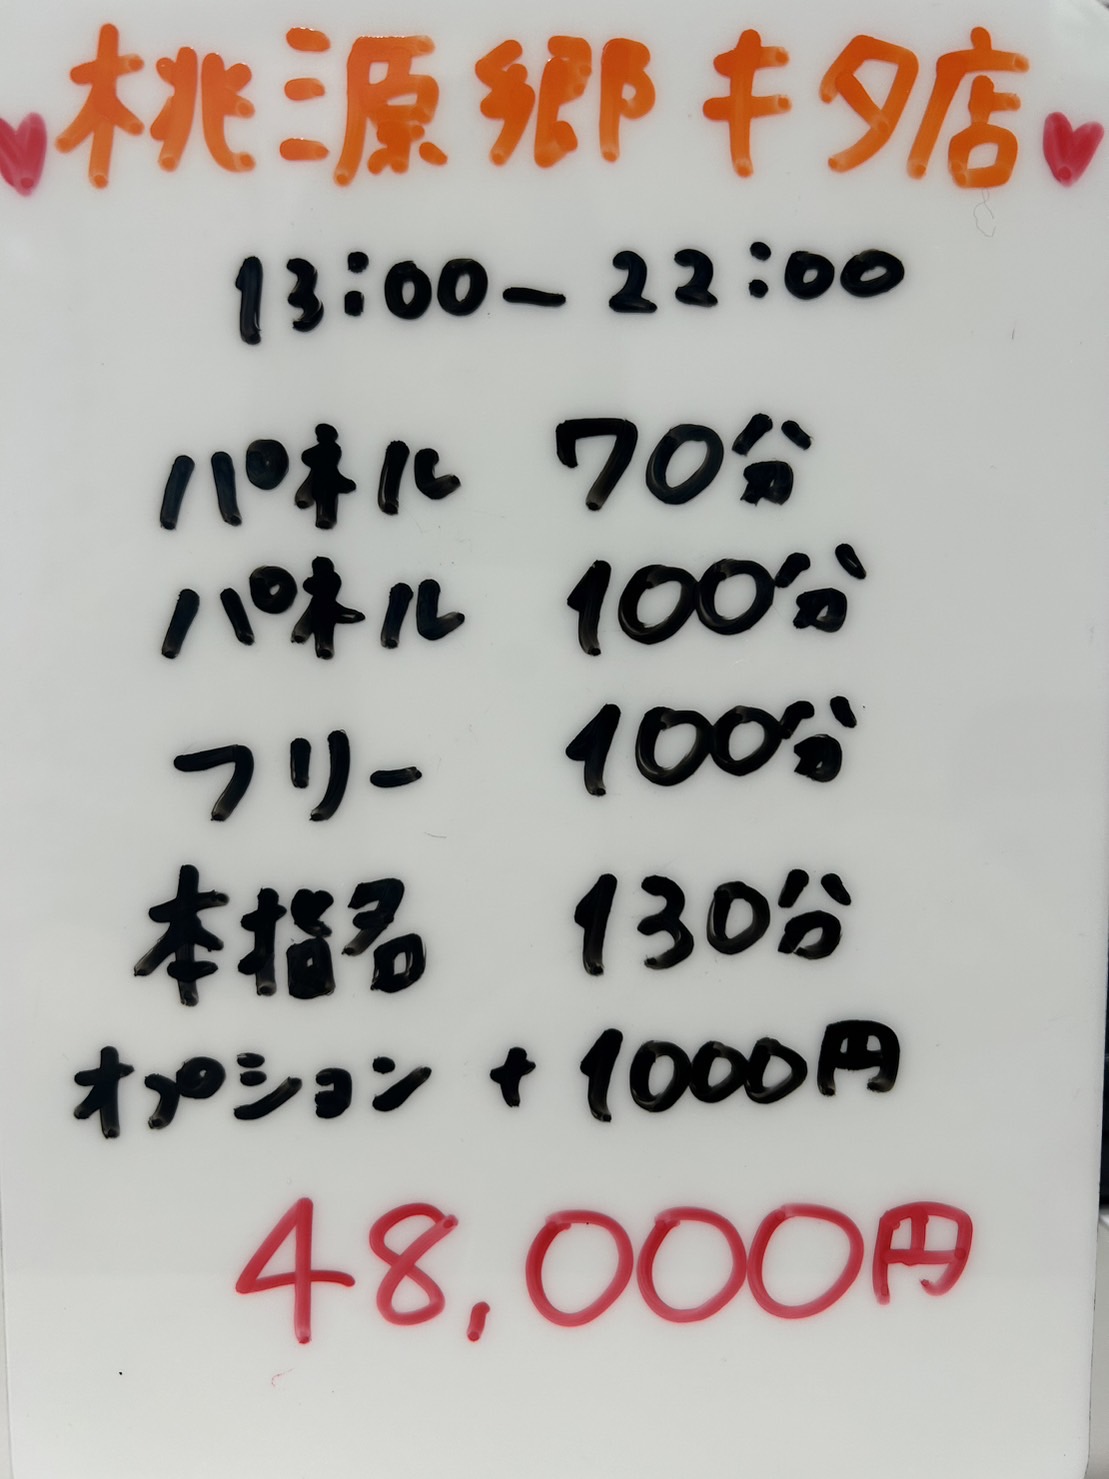 桃源郷キタ店
13:00ー22:00
パネル 70分
パネル 100分
フリー 100分
本指名 130分
オプション +1000円
48,000円